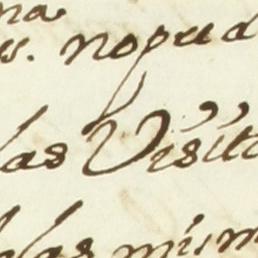 na
s. nopud
las Visita
las mism